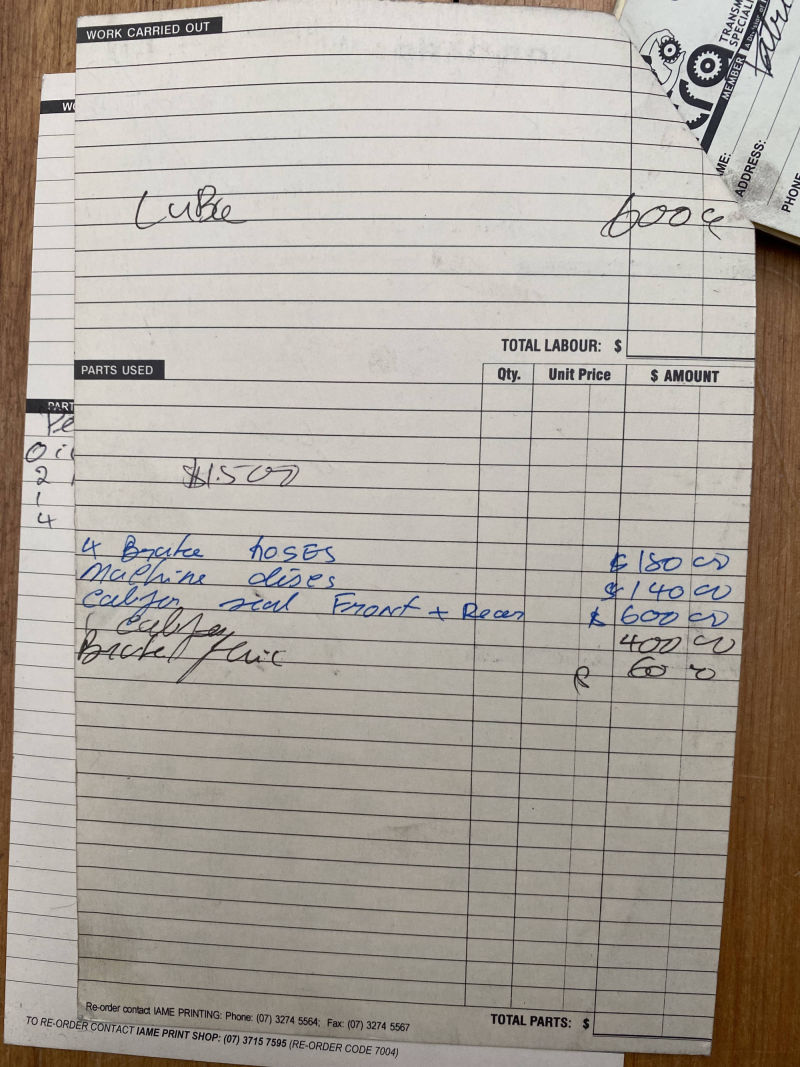 WORK CARRIED OUT
TRANSM
SPECIAL
MEMBER
ME:
ADDRESS:
PHONE
WO
LuBe
600
TOTAL LABOUR: $
PARTS USED
Qty. Unit Price $ AMOUNT
PART
Oil
2
1
4
$1500
4 Brake hoses $180 00
Machine discs $140 00
Califor seal Front + Rear $600 00
1 Califer 400 00
Brake fluic 60 00
Re-order contact IAME PRINTING: Phone: (07) 3274 5564; Fax: (07) 3274 5567
TOTAL PARTS: $
TO RE-ORDER CONTACT IAME PRINT SHOP: (07) 3715 7595 (RE-ORDER CODE 7004)